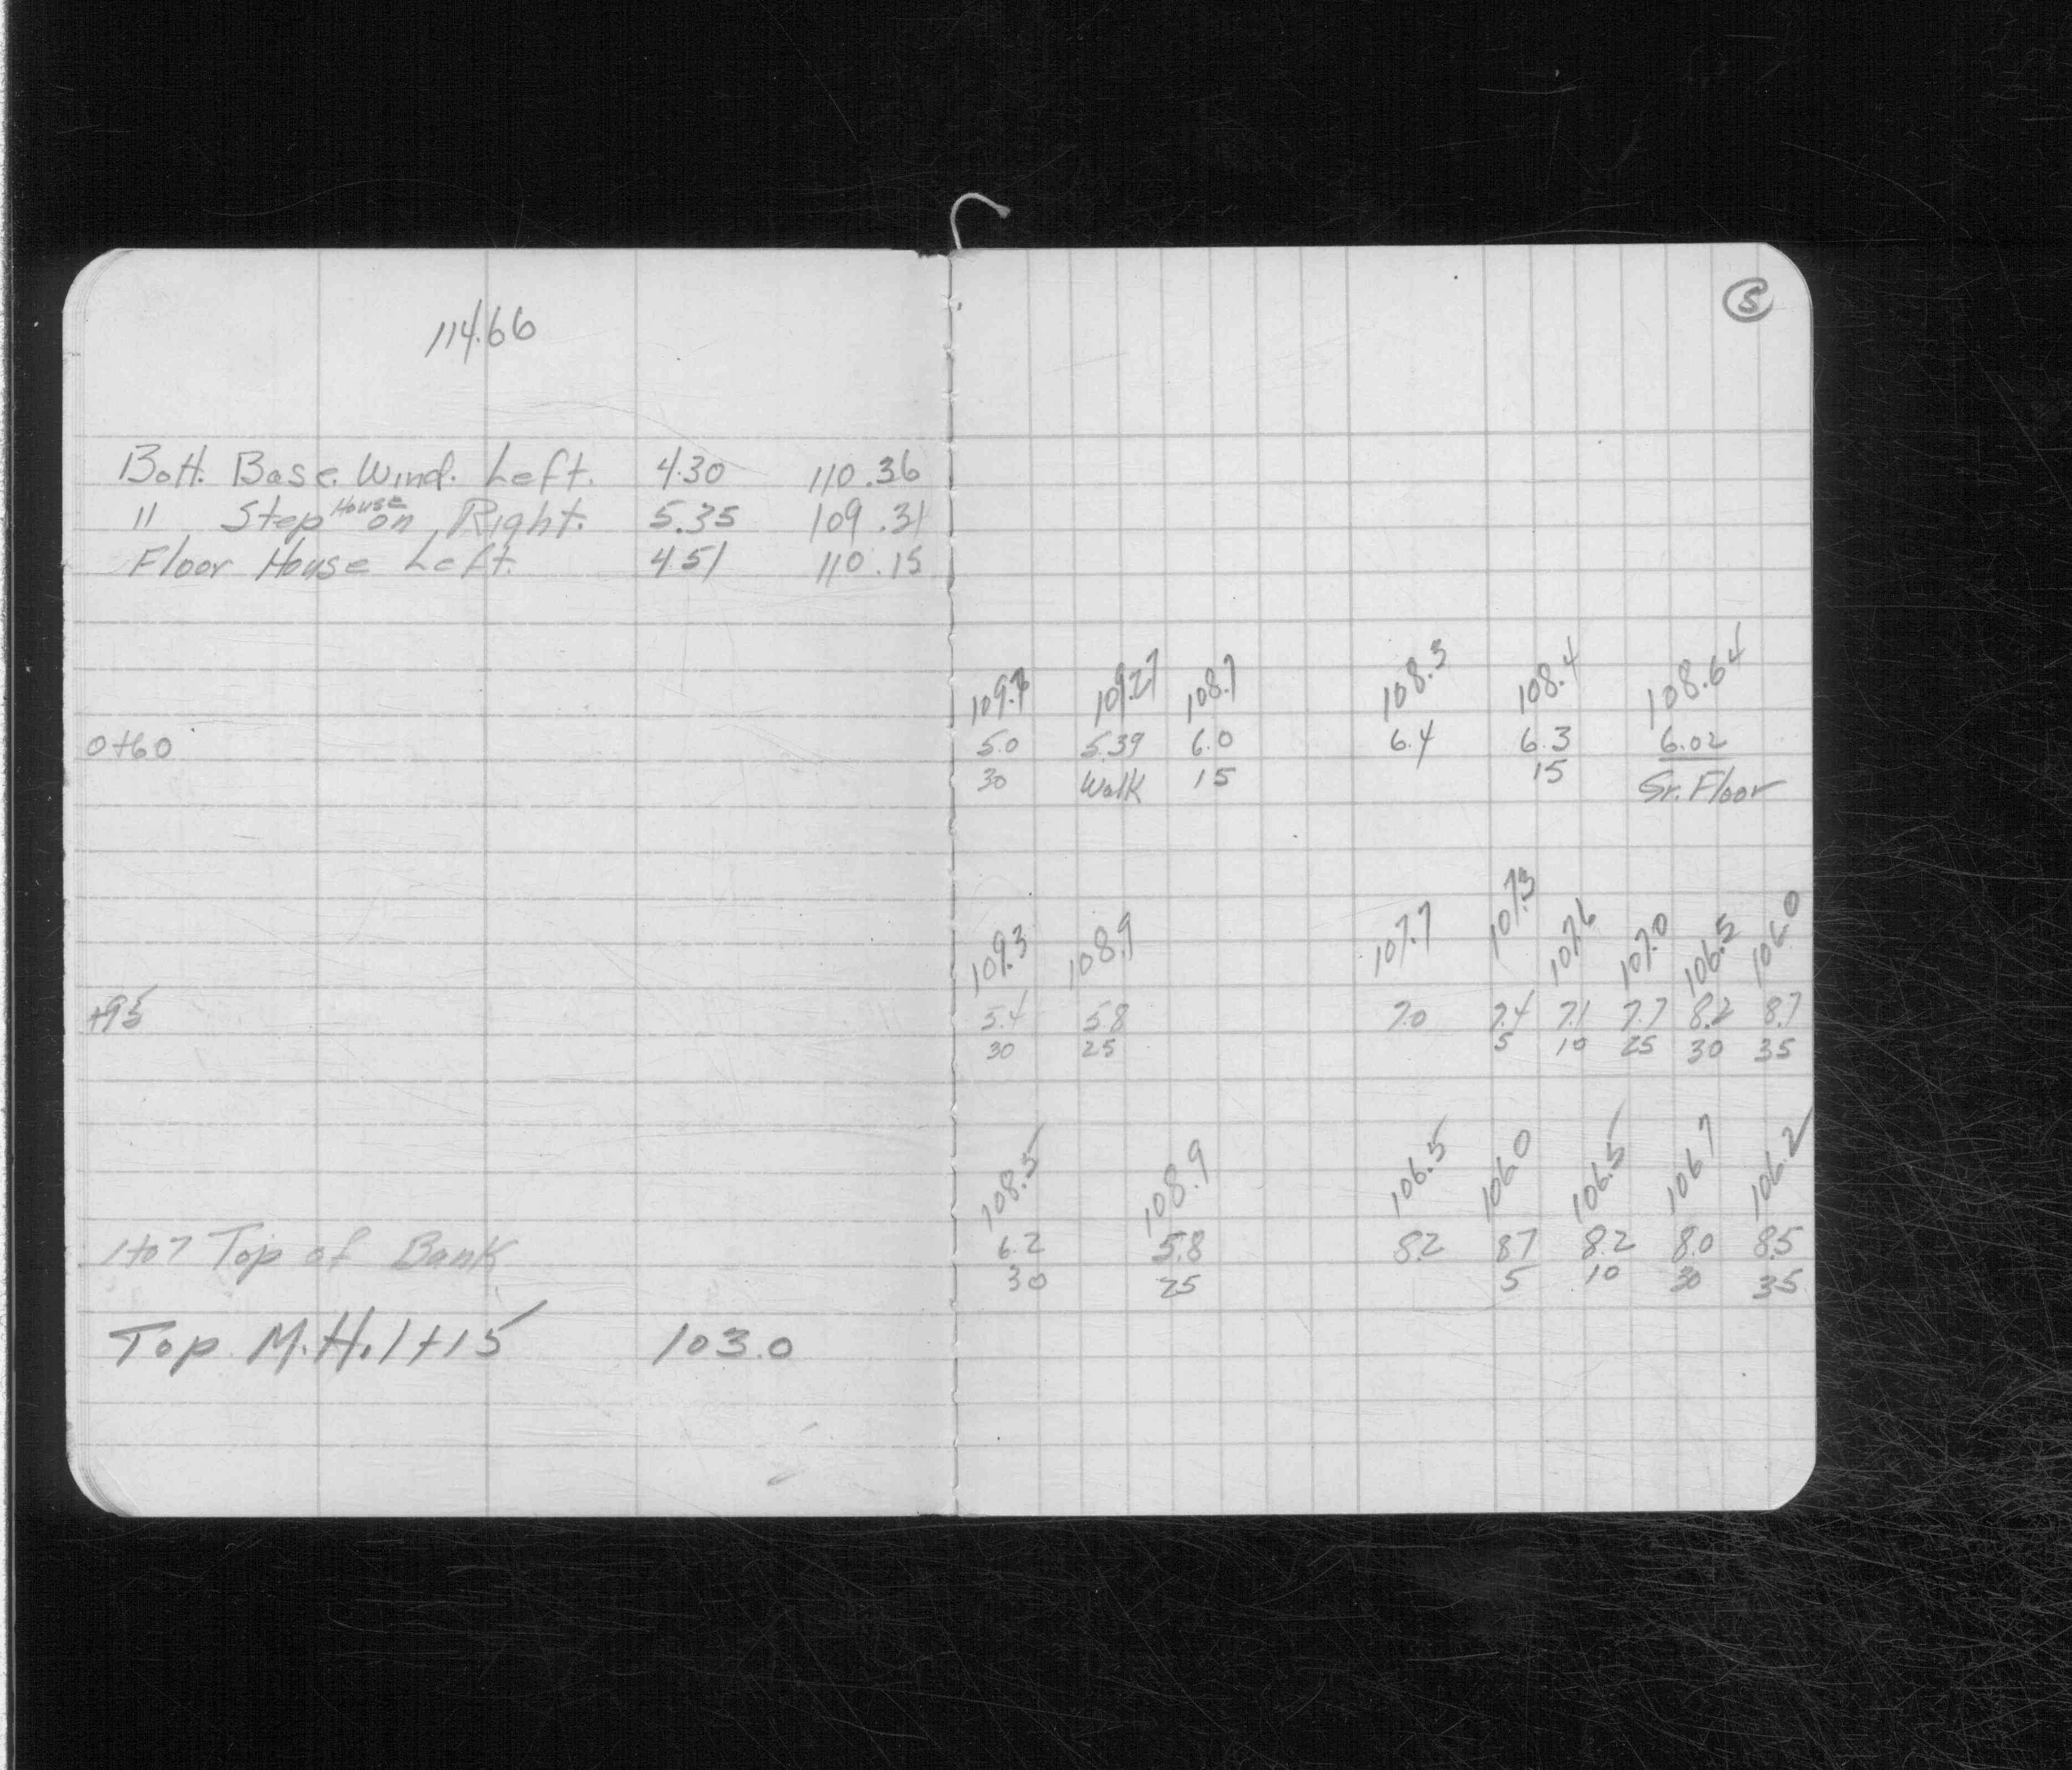 5
114.66
Bott. Base. Wind. Left. 4.30 110.36
" Step House on Right. 5.35 109.31
Floor House Left. 4.51 110.15
109.27 108.7 108.3 108.4 108.64
0+60 5.0 5.39 6.0 6.4 6.3 6.02
30 Walk 15 15 Gr. Floor
109.3 108.9 107.7 107.3 107.6 107.0 106.5 106.0
+95 5.4 5.8 7.0 7.4 7.1 7.7 8.2 8.7
30 25 5 10 25 30 35
108.5 108.9 106.5 106.0 106.5 106.7 106.2
1+07 Top of Bank 6.2 5.8 8.2 8.7 8.2 8.0 8.5
30 25 5 10 30 35
Top M.H. 1+15 103.0